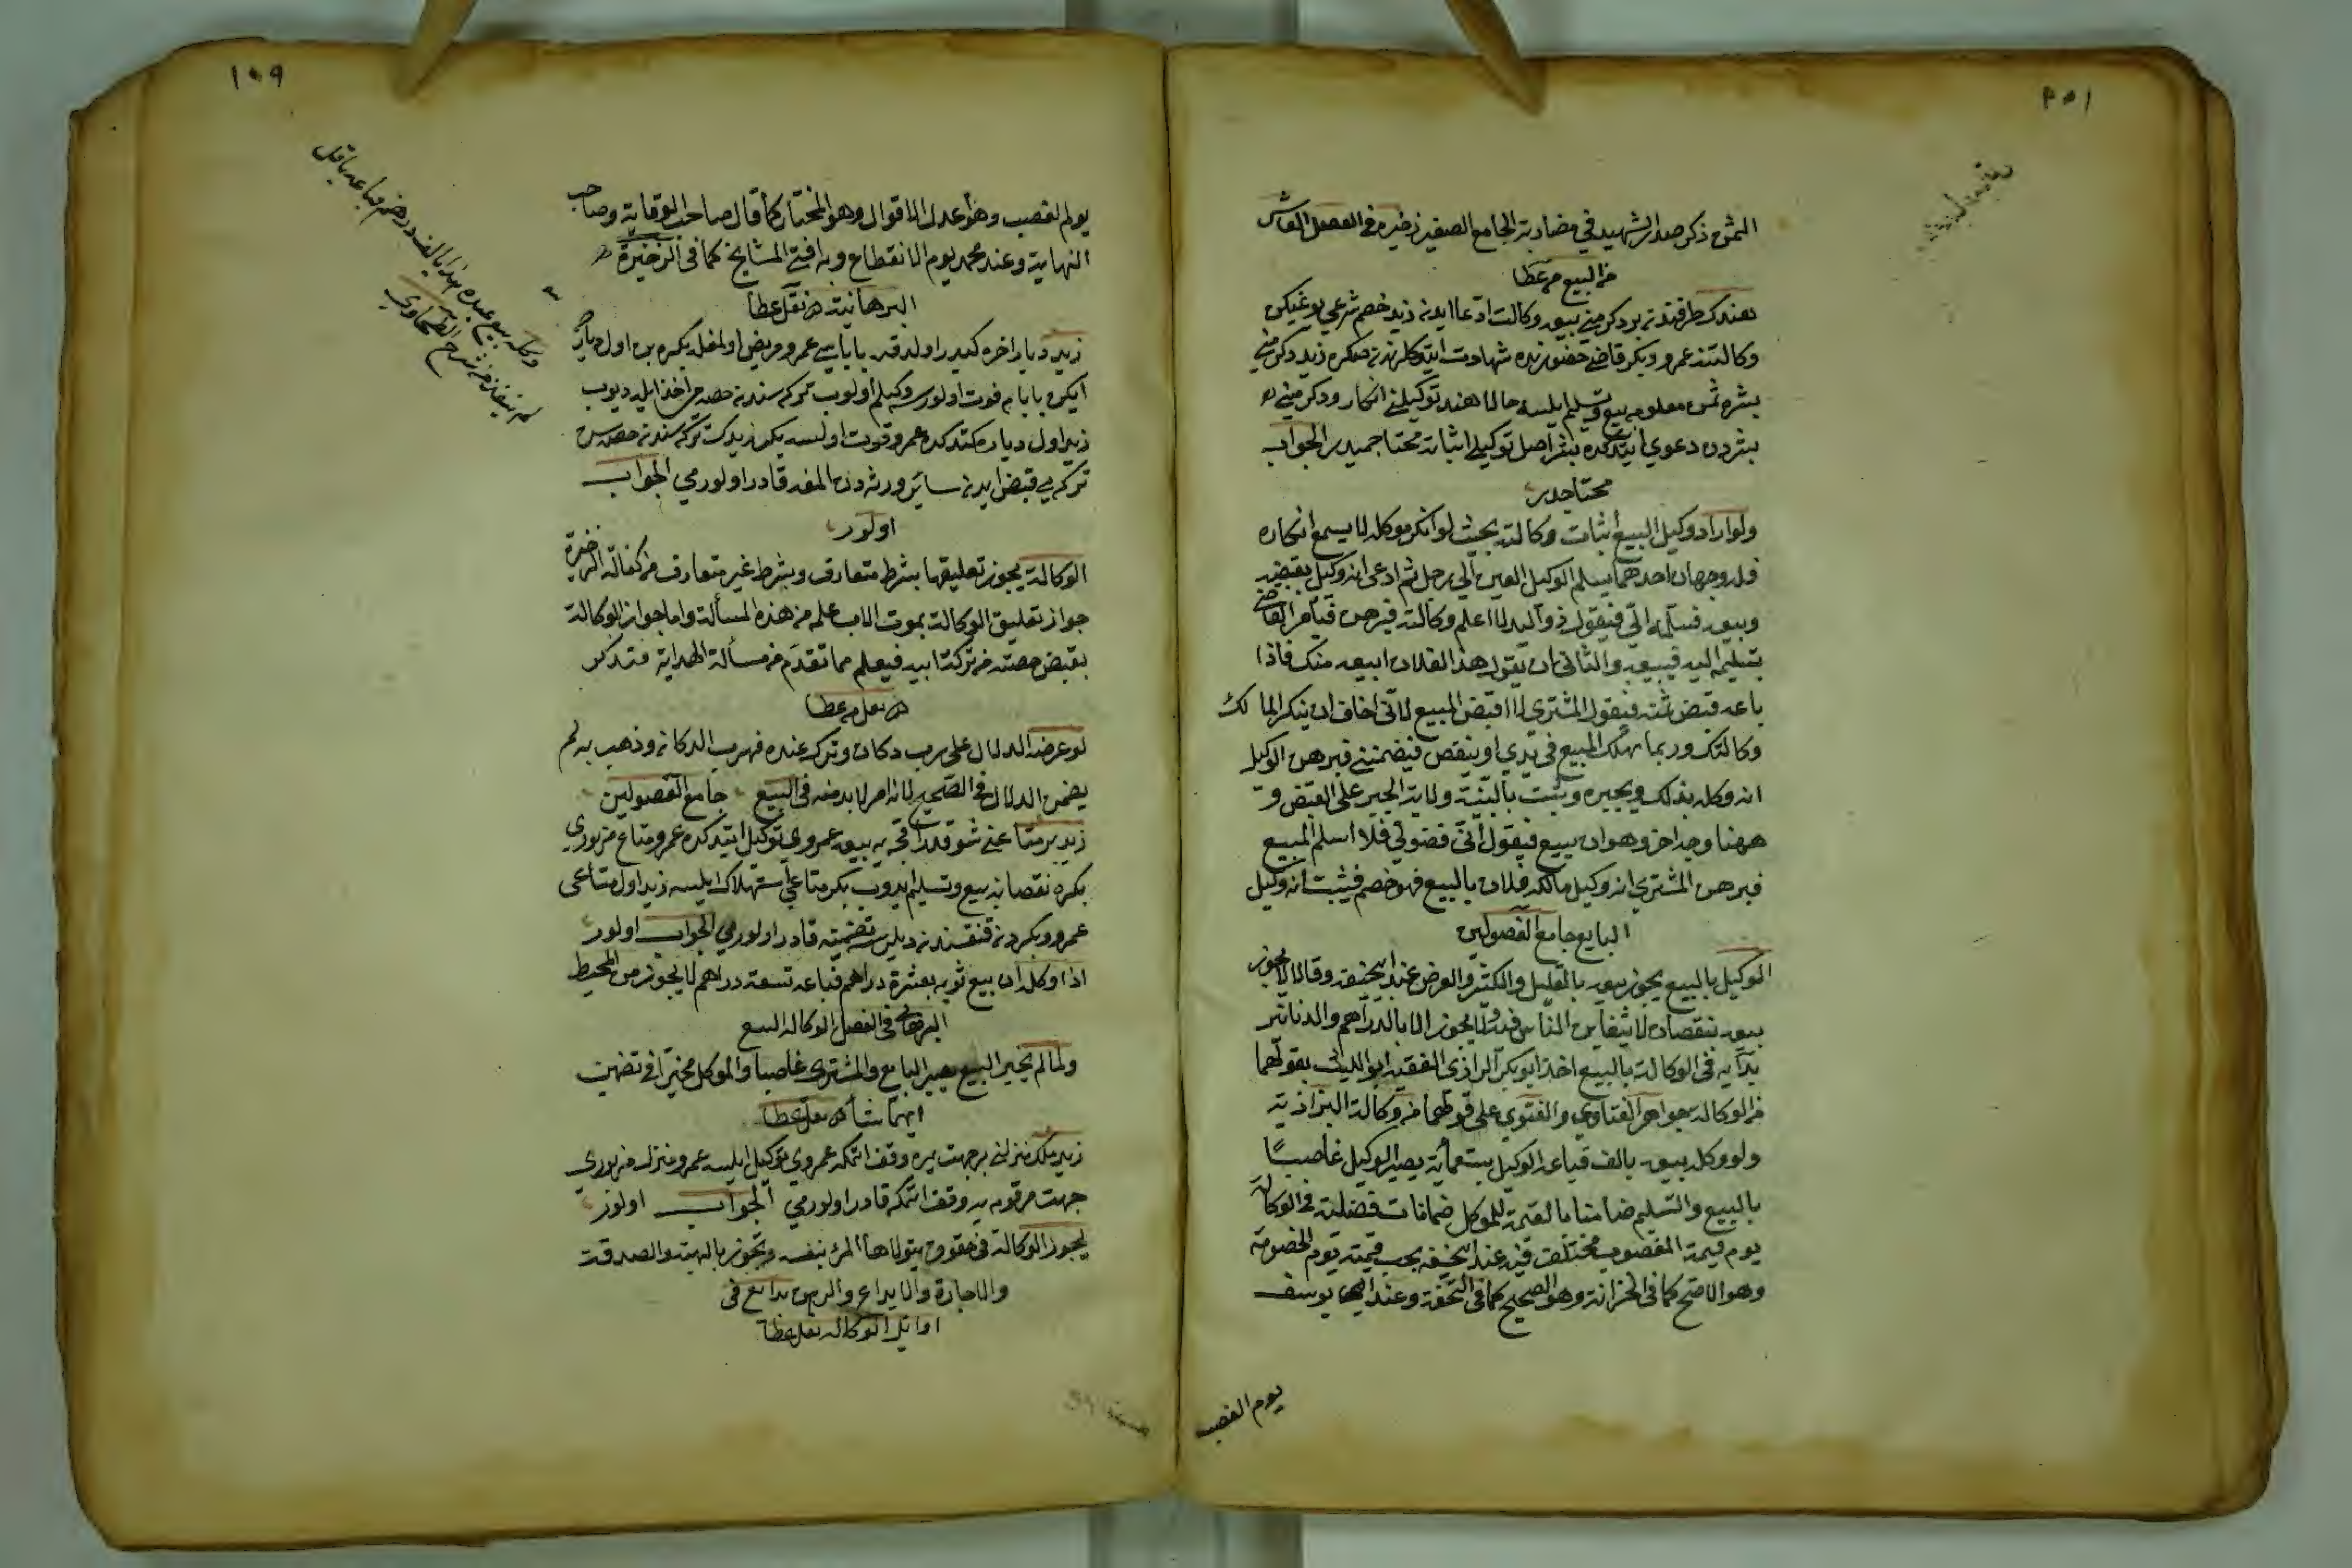 الثمن ذكر صدر الشهيد في مضاربة الجامع الصغير ذخيره في الفصل العاشر
من البيع من عطا
هند كه طرفندن بر دكرمني بيعه وكالت ادعا ايدن زيد خصم شرعي يوغيكن
وكالتنه عمرو وبكر قاضي حضورنده شهادت ايتدكلرندن صكره زيد دكرمني
بشره ثمن معلومه بيع وتسليم ايلسه حالا هند توكيلني انكار ودكرمني
بشردن دعوي ايتدكده بشر اصل توكيلي اثباته محتاجميدر الجواب
محتاجدر
ولو اراد وكيل البيع اثبات وكالته بحيث لو انكر موكله لا يسمع انكاره
فله وجهان احدهما يسلم الوكيل العين الي رجل ثم ادعى انه وكيل بقبضه
وبيعه فسلمه الي فيقول ذو اليد لا اعلم وكالته فبرهن فيأمر القاضي
بتسليمه اليه فيبيعه والثاني ان يقول هذا لفلان ابيعه منك فاذا
باعه قبض ثمنه فيقول المشتري لا اقبض المبيع لاني اخاف ان ينكر المالك
وكالتك وربما يهلك المبيع في يدي او ينقص فيضمنني فبرهن الوكيل
انه وكله بذلك ويجبره ويثبت بالبينة ولاية الجبر على القبض و
ههنا وجه اخر وهو ان يبيع فيقول اني فضولي فلا اسلم المبيع
فبرهن المشتري انه وكيل مالكه فلان بالبيع فهو خصم فيثبت انه وكيل
البايع جامع الفصولين
الوكيل بالبيع يجوز بيعه بالقليل والكثير والعرض عند ابي حنيفه وقالا لا يجوز
بيعه بنقصان لا يتغابن الناس فيه ولا يجوز الا بالدراهم والدنانير
بدايه في الوكالة بالبيع اخذ ابو بكر الرازي الفقيه ابو الليث بقولهما
من الوكاله جواهر الفتاوي والفتوي على قولهما من وكالة البزازية
ولو وكله ببيعه بالف فباعه الوكيل بستمأية يصير الوكيل غاصبا
بالبيع والتسليم ضامنا بالقيمة للموكل ضمانات فضلية في الوكالة
يوم قيمة المغصوب مختلف فيه عند ابي حنيفه يجب قيمته يوم الخصومة
وهو الاصح كما في الخزانة وهو الصحيح كما في التحفة وعند ابي يوسف
يوم الغصب
١٥٩
يوم الغصب وهو اعدل الاقوال وهو المختار كما قال صاحب الوقاية وصاحب
النهاية وعند محمد يوم الانقطاع وبه افتي المشايخ كما في الذخيرة
البرهانية من نقل عطا
زيد ديار اخره كيدر اولدقده باباسي عمرو مريض اولمغله بكره بن اول ديار
ايكن بابام فوت اولورسه وكيلم اولوب تركه سندن حصه مي اخذ ايله ديوب
زيد اول دياره كتدكده عمرو فوت اولسه بكر زيدك تركه سندن حصه سن
تركه يي قبض ايدن سائر ورثه دن المغه قادر اولورمي الجواب
اولور
الوكالة يجوز تعليقها بشرط متعارف وبشرط غير متعارف من كفالة الذخيرة
جواز تعليق الوكالة بموت الاب علم من هذه المسألة واما جواز الوكالة
بقبض حصته من تركة ابيه فيعلم مما تقدم من مسألة الهداية فتذكر
من نقل من عطا
لو عرضه الدلال على رب دكان وتركه عنده فهرب الدكاني وذهب به لم
يضمن الدلال في الصحيح لانه امر لابد منه في البيع جامع الفصولين
زيد بر متاعني شو قدر اقچه يه بيعه عمروي توكيل ايتدكده عمرو متاع مزبوري
بكره نقصانه بيع وتسليم ايدوب بكر متاعي استهلاك ايلسه زيد اول متاعي
عمرو وبكردن قنغسندن ديلرسه تضمينه قادر اولورمي الجواب اولور
اذا وكله ان بيع ثوبه بعشرة دراهم فباعه تسعة دراهم لا يجوز من المحيط
البرهاني في الفصل الوكاله البيع
ولما لم يجبر البيع يصير البايع والمشتري غاصبا والموكل مخيرا في تضمين
ايهما شأ من نقل عطا
زيد ملك منزلني بر جهت بره وقف اتمكه عمروي توكيل ايلسه عمرو منزل مزبوري
جهت مرقومه يه وقف اتمكه قادر اولورمي الجواب اولور
يجوز الوكالة في حقوق يتولاها المرء بنفسه وتجوز بالهبة والصدقة
والاجارة والايداع والرهن بدايع في
اوائل الوكاله نقل عطا